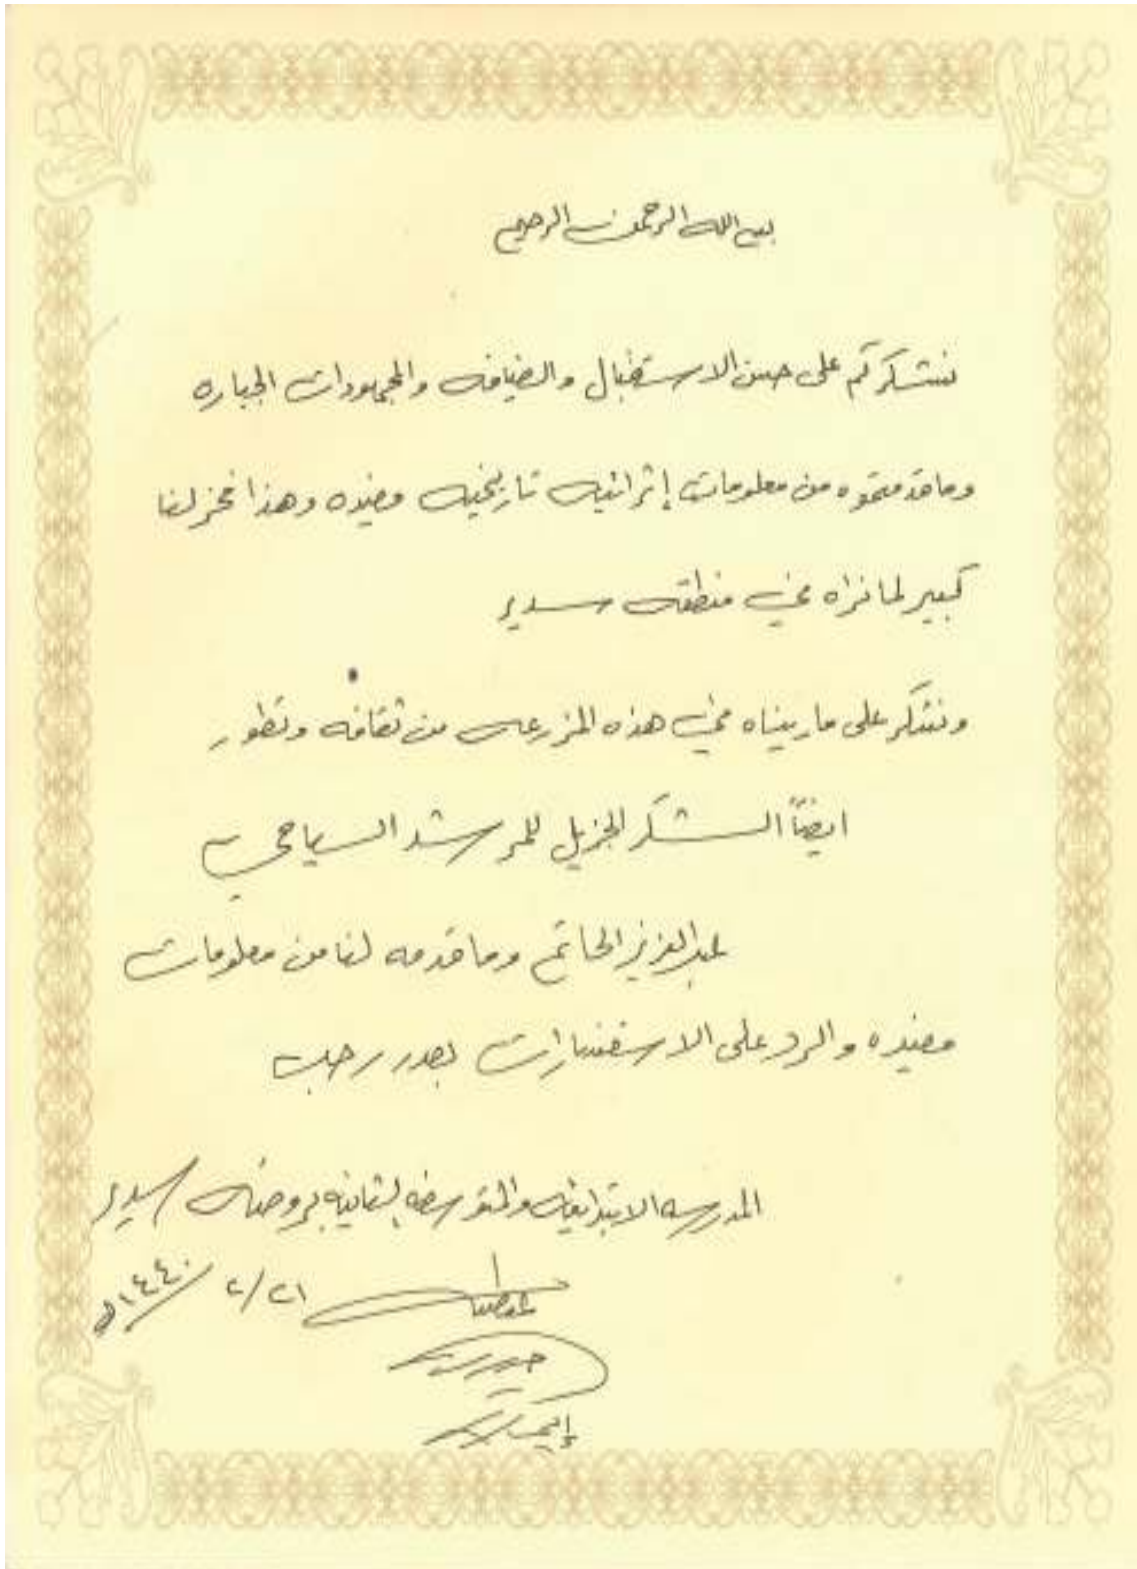 بسم الله الرحمن الرحيم
نشكركم على حسن الاستقبال والضيافه والمجهودات الجباره
وماقدمتموه من معلومات إثرائيه تاريخيه مفيده وهذا فخر لنا
كبير لما نراه في منطقه سدير
ونشكر على ماريناه في هذه المزرعه من ثقافه وتطور
ايضاً الشكر الجزيل للمرشد السياحي
عبدالعزيز الحاتم وما قدمه لنا من معلومات
مفيده والرد على الاستفسارات بصدر رحب
المدرسه الابتدائيه والمتوسطه الثانيه بروضه سدير
٢١/٢/١٤٤٠هـ